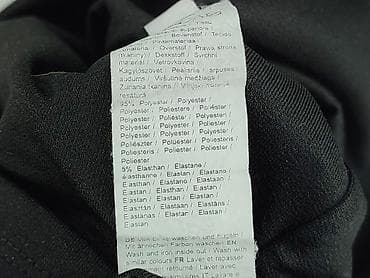 superiore /
Bovenstof / Tecido
Overstof / Prava strona
Dekkstoff / Svrchní
materiál / Vetrovkovina
Kagylószövet / Pealisriie / arpuses
audums / Viršutinė medžiaga
95% Polyester / Polyester
Polyester / Poliestere / Poliéster /
Polyester / Poliéster / Polyester
Polyester / Polyester / Polyester
Polyester / Polyester / Polyester
Poliészter / Polüester /
Poliesteris / Poliester / Poliester
Poliester
5% Elasthan / Elastane /
élasthanne / Elastan / Elastano /
Elastaan / Elastano / Elastan /
Elasthan / Elastan / Elastan /
Elastan / Elastan / Elastan /
Elastán / Elastaan / Elastāns /
Elastanas / Elastan / Elastan
Elastan
DE
Mit ähnlichen Farben waschen EN
Wash and iron inside out / Wash with
similar colours FR Laver et repasser
retourné / Laver avec